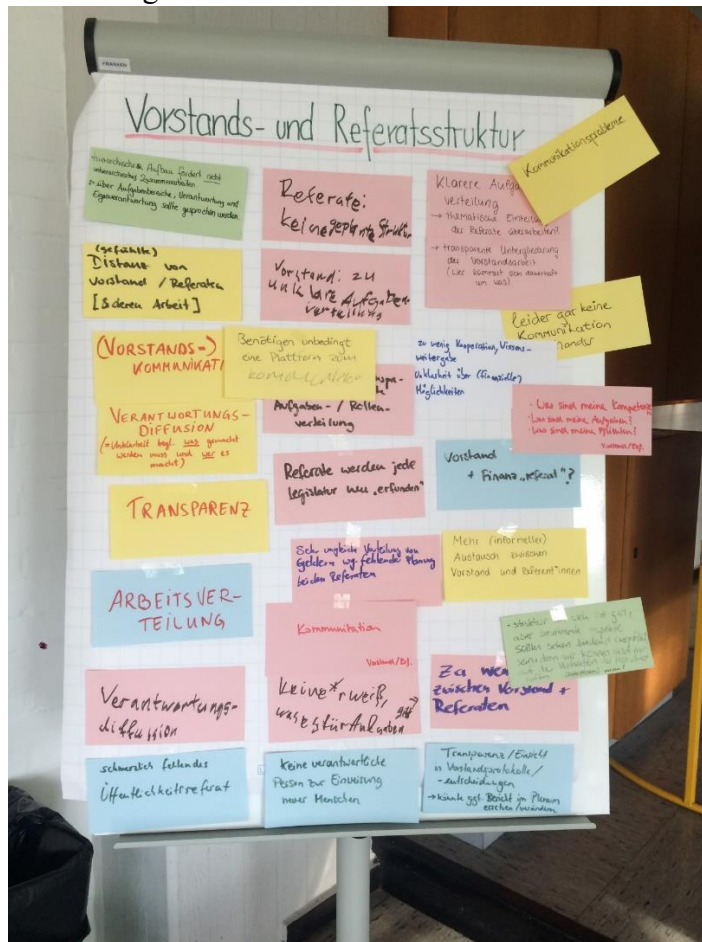 FRANKEN
Vorstands- und Referatsstruktur
Kommunikationsprobleme
Hierarchischer Aufbau fördert nicht
unbereichertes Zusammenarbeiten
über Aufgabenbereiche, Verantwortung und
Eigenverantwortung sollte gesprochen werden
Referate:
keine geplante Struktur
Klarere Aufga
verteilung
→ thematische Einteilung
der Referate überarbeiten?
→ transparente Untergliederung
der Vorstandsarbeit
(wer kümmert sich dauerhaft
um was)
(gefühlte)
Distanz von
Vorstand / Referaten
[& deren Arbeit]
Vorstand: zu
unklare Aufgaben-
verteilung
leider gar keine
Kommunikation
nander
(VORSTANDS-)
KOMMUNIKATI
Benötigen unbedingt
eine Plattform zum
zu wenig Kooperation, Wissens-
weitergabe
Unklarheit über (finanzielle)
Möglichkeiten
VERANTWORTUNGS-
DIFFUSION
(= Unklarheit bzgl. was gemacht
werden muss und wer es
macht)
Aufgaben- / Rollen-
verteilung
- Was sind meine Kompetenzen
- Was sind meine Aufgaben?
- Was sind meine Pflichten?
Vorstand/Ref.
TRANSPARENZ
Referate werden jede
Legislatur neu „erfunden"
Vorstand
+ Finanz„referat"?
Sehr ungleiche Verteilung von
Geldern wg. fehlende Planung
bei den Referaten
Mehr (informeller)
Austausch zwischen
Vorstand und Referent*innen
ARBEITSVER-
TEILUNG
Kommunikation
Vorstand/Ref.
- Struktur an sich ist gut,
aber
Verantwortungs-
diffusion
Keine*r weiß,
was es für Aufgaben
gibt
Zu we
zwischen Vorstand +
Referaten
schmerzlich fehlendes
Öffentlichkeitsreferat
Keine verantwortliche
Person zur Einweisung
neuer Menschen
Transparenz/Einsicht
in Vorstandsprotokolle/
-entscheidungen
→ könnte ggf. Bericht im Plenum